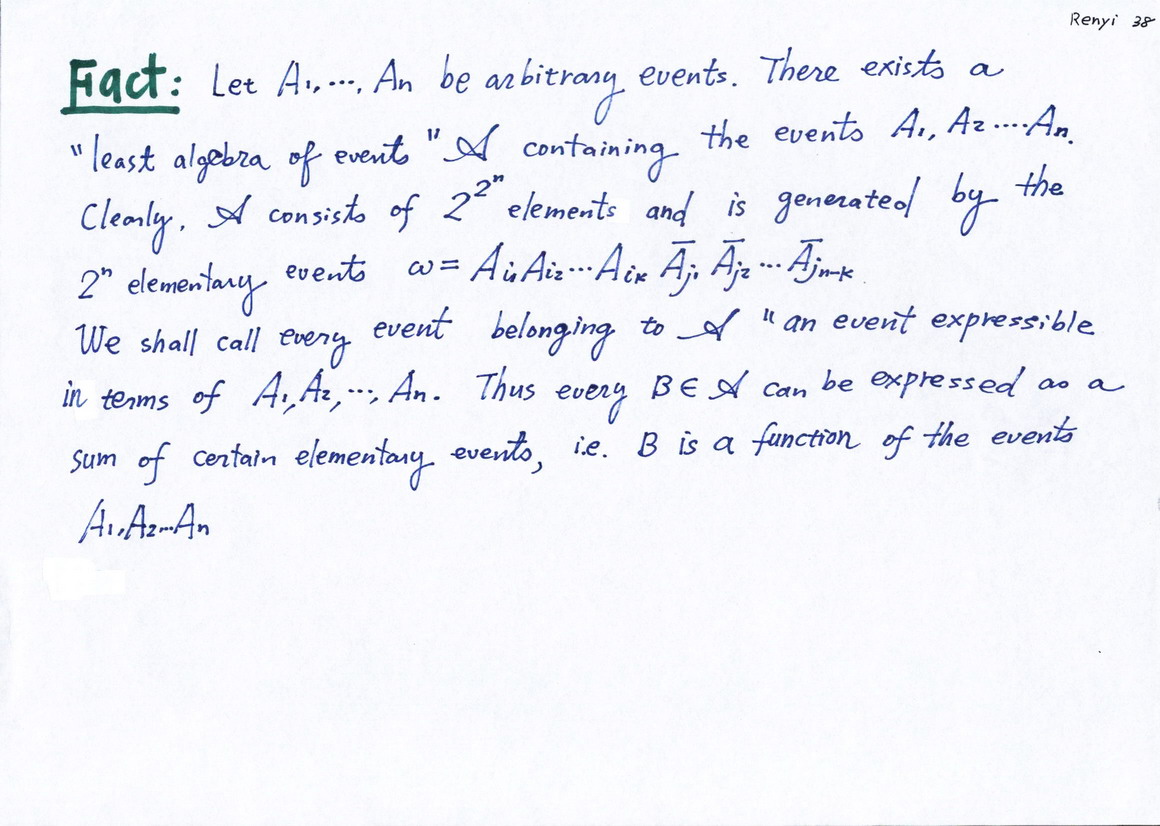 Renyi 38
Fact: Let A₁, ..., Aₙ be arbitrary events. There exists a
"least algebra of events" 𝒜 containing the events A₁, A₂ .... Aₙ.
Clearly, 𝒜 consists of 2^2^n elements and is generated by the
2ⁿ elementary events ω = A_i₁ A_i₂ ... A_iₖ Ā_j₁ Ā_j₂ ... Ā_jₙ₋ₖ
We shall call every event belonging to 𝒜 "an event expressible
in terms of A₁, A₂, ..., Aₙ. Thus every B ∈ 𝒜 can be expressed as a
sum of certain elementary events, i.e. B is a function of the events
A₁, A₂ ... Aₙ